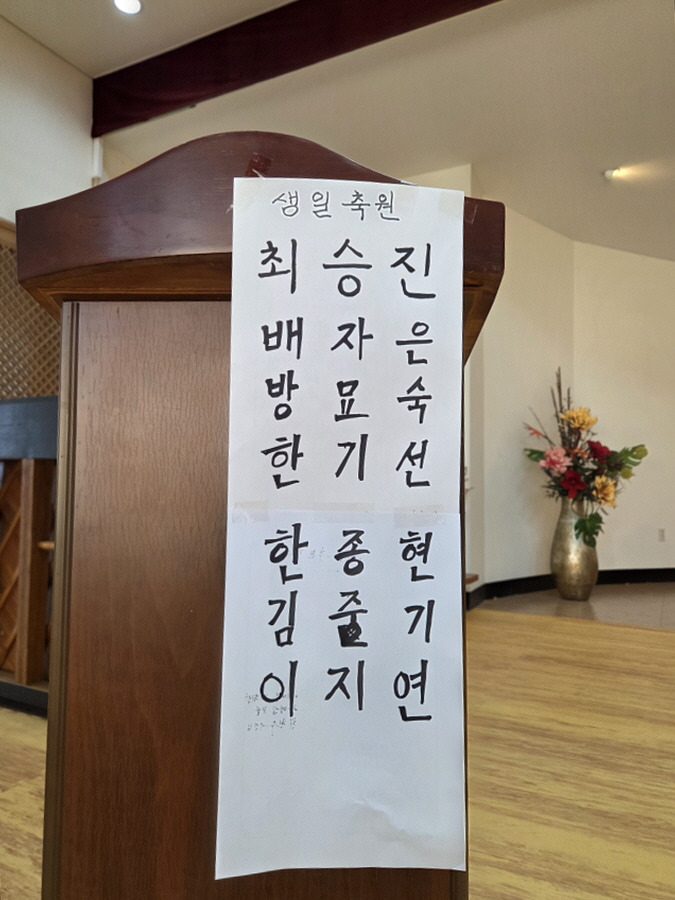 생일축원
최승진
배자은
방묘숙
한기선
한종현
김줄기
이지연